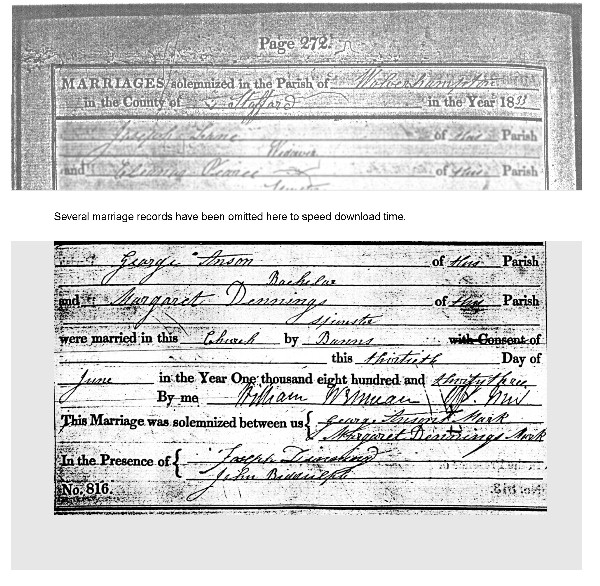 Page 272.
MARRIAGES solemnized in the Parish of Wolverhampton
in the County of Stafford in the Year 1833
Joseph of this Parish
Widower
and Eleanor of this Parish
Several marriage records have been omitted here to speed download time.
George Anson of this Parish
Bachelor
and Margaret Dennings of this Parish
spinster
were married in this Church by Banns with Consent of
this thirtieth Day of
June in the Year One thousand eight hundred and thirty three
By me William
This Marriage was solemnized between us { George Anson's Mark
Margaret Dennings Mark
In the Presence of { Joseph
John Biddulph
No. 816.